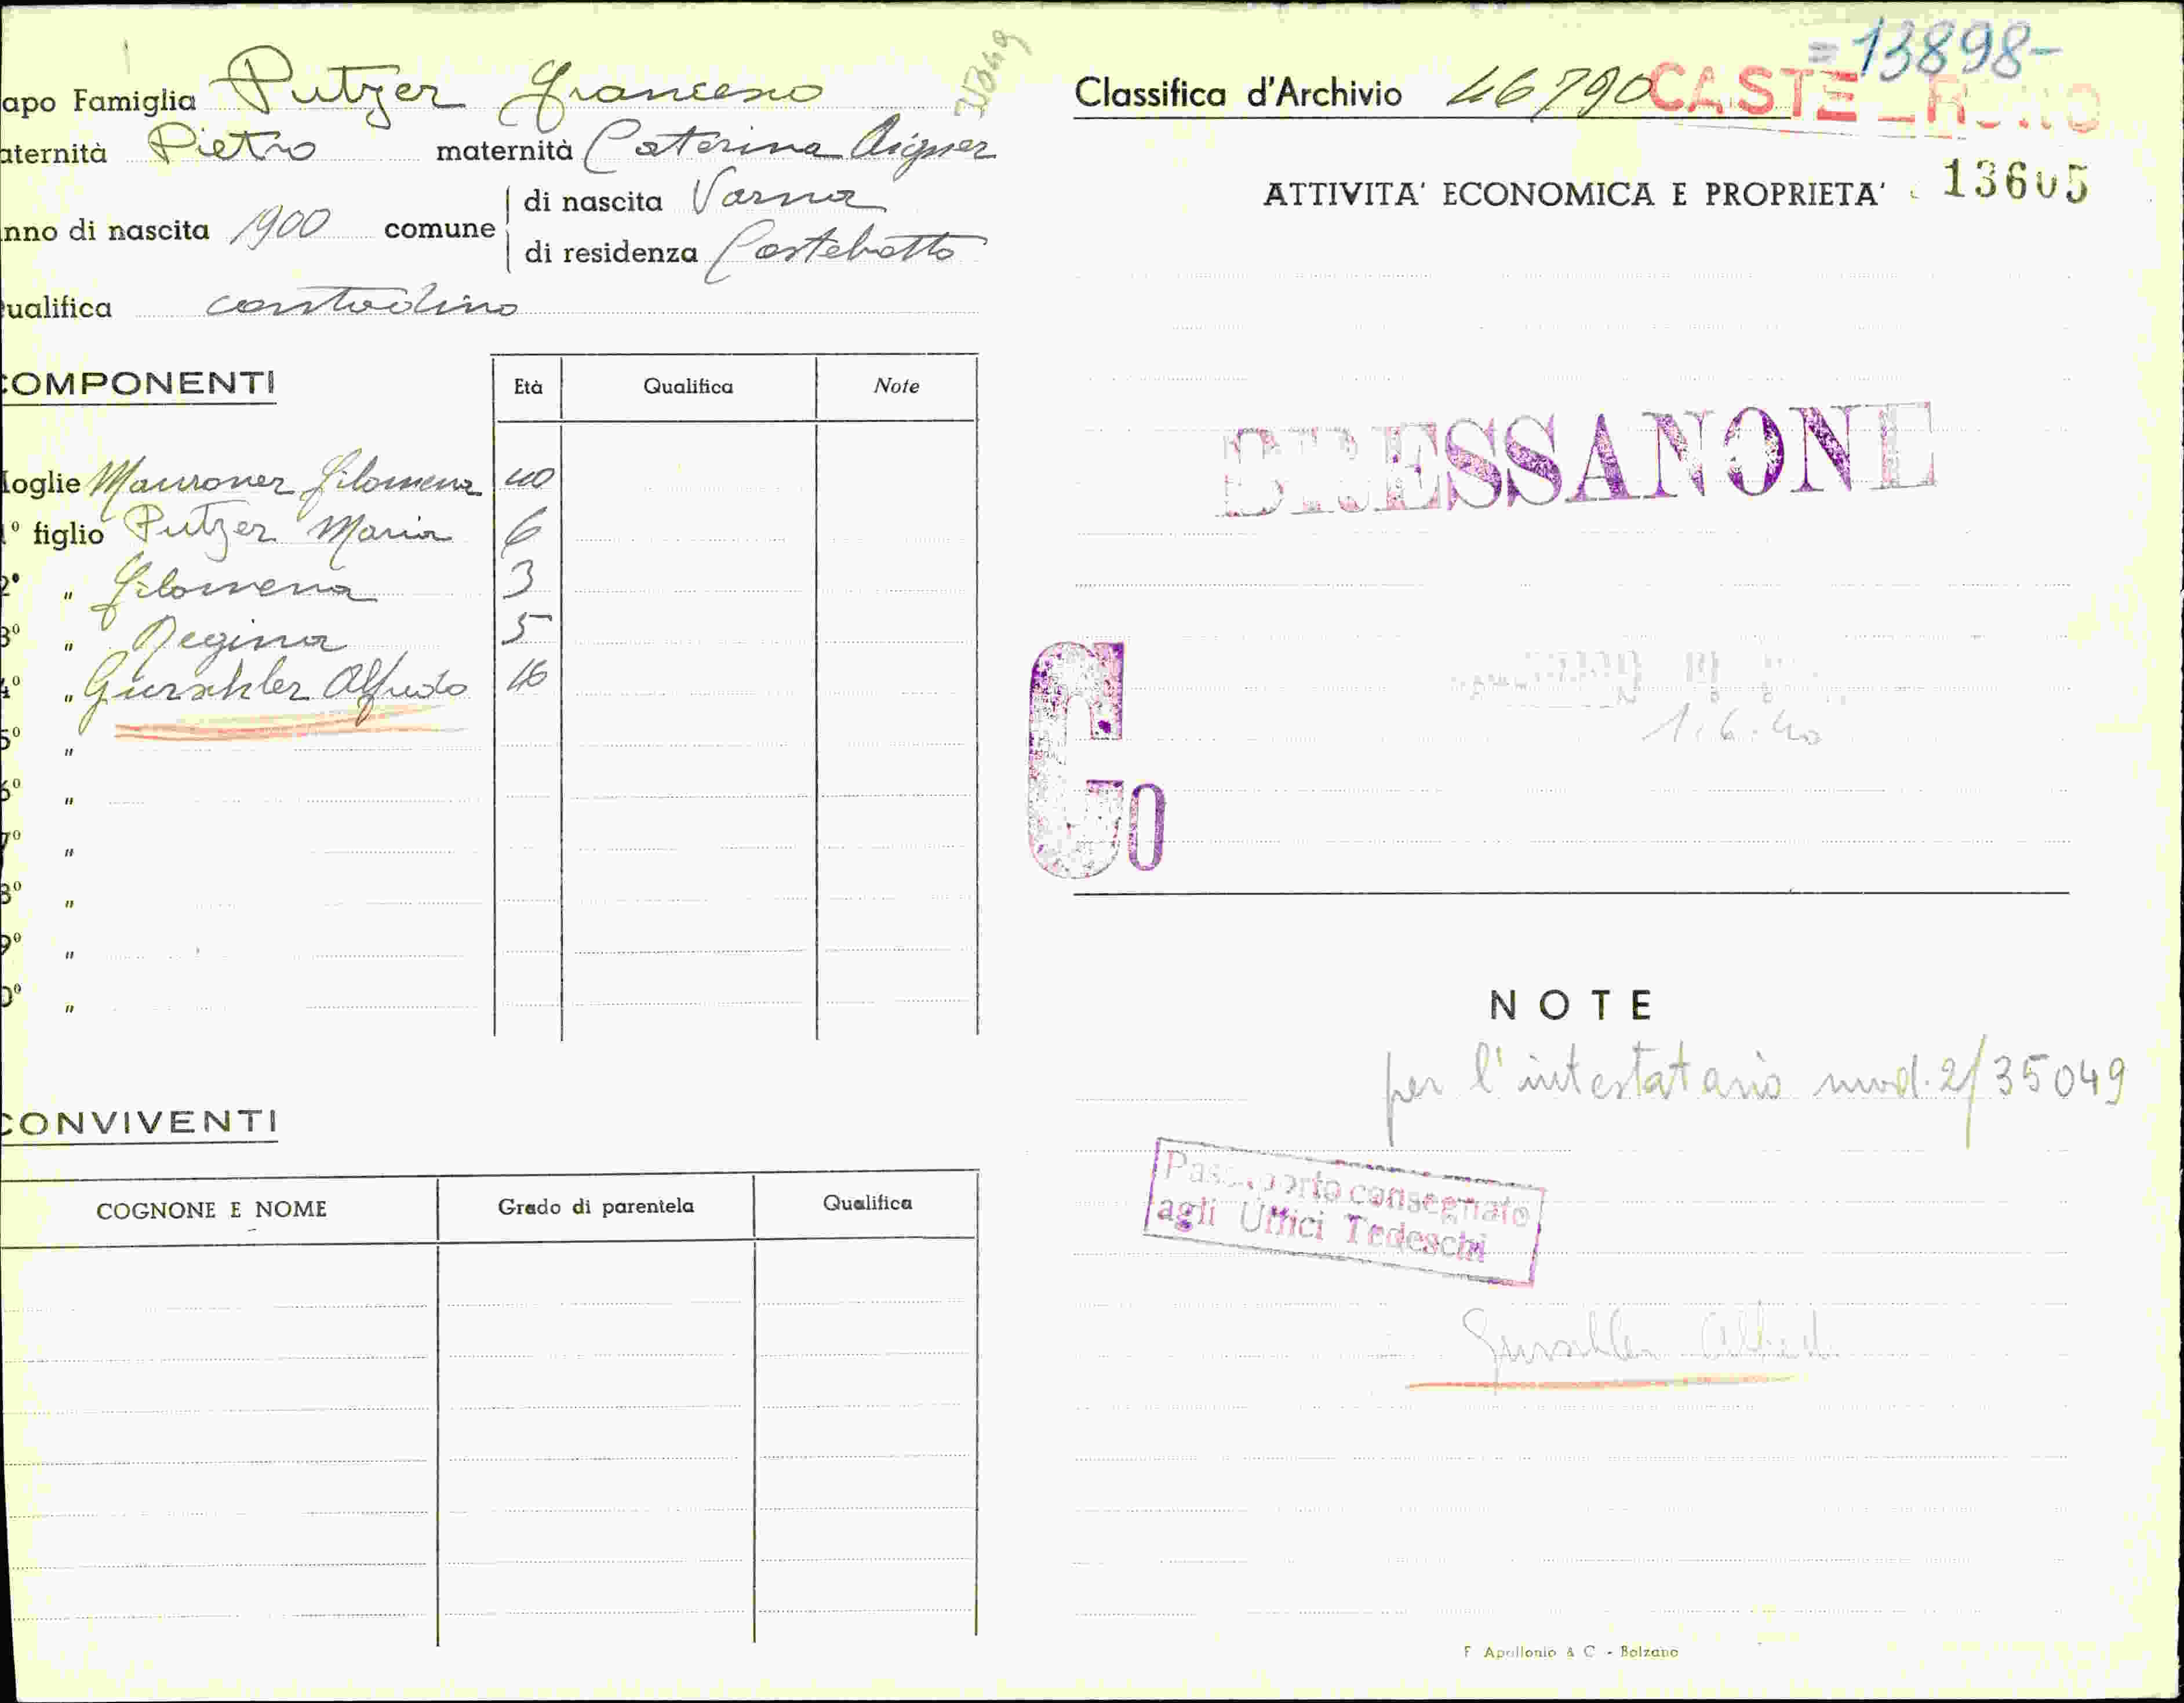 apo Famiglia Putzer Francesco
aternità Pietro maternità Caterina Aigner
nno di nascita 1900 comune di nascita Varna
di residenza Castelrotto
ualifica contadino
35049
COMPONENTI
Età Qualifica Note
oglie Mauroner Filomena 40
1º figlio Putzer Maria 6
2º " Filomena 3
3º " Regina 5
4º " Gurschler Alfredo 16
5º "
6º "
7º "
8º "
9º "
0º "
CONVIVENTI
COGNONE E NOME Grado di parentela Qualifica
= 13898-
Classifica d'Archivio 46790
ATTIVITA' ECONOMICA E PROPRIETA' 13605
BRESSANONE
1.6.40
Go
NOTE
per l'intestatario mod. 2/35049
Passaporto consegnato
agli Uffici Tedeschi
Gurschler Alfred
F. Apollonio & C. - Bolzano